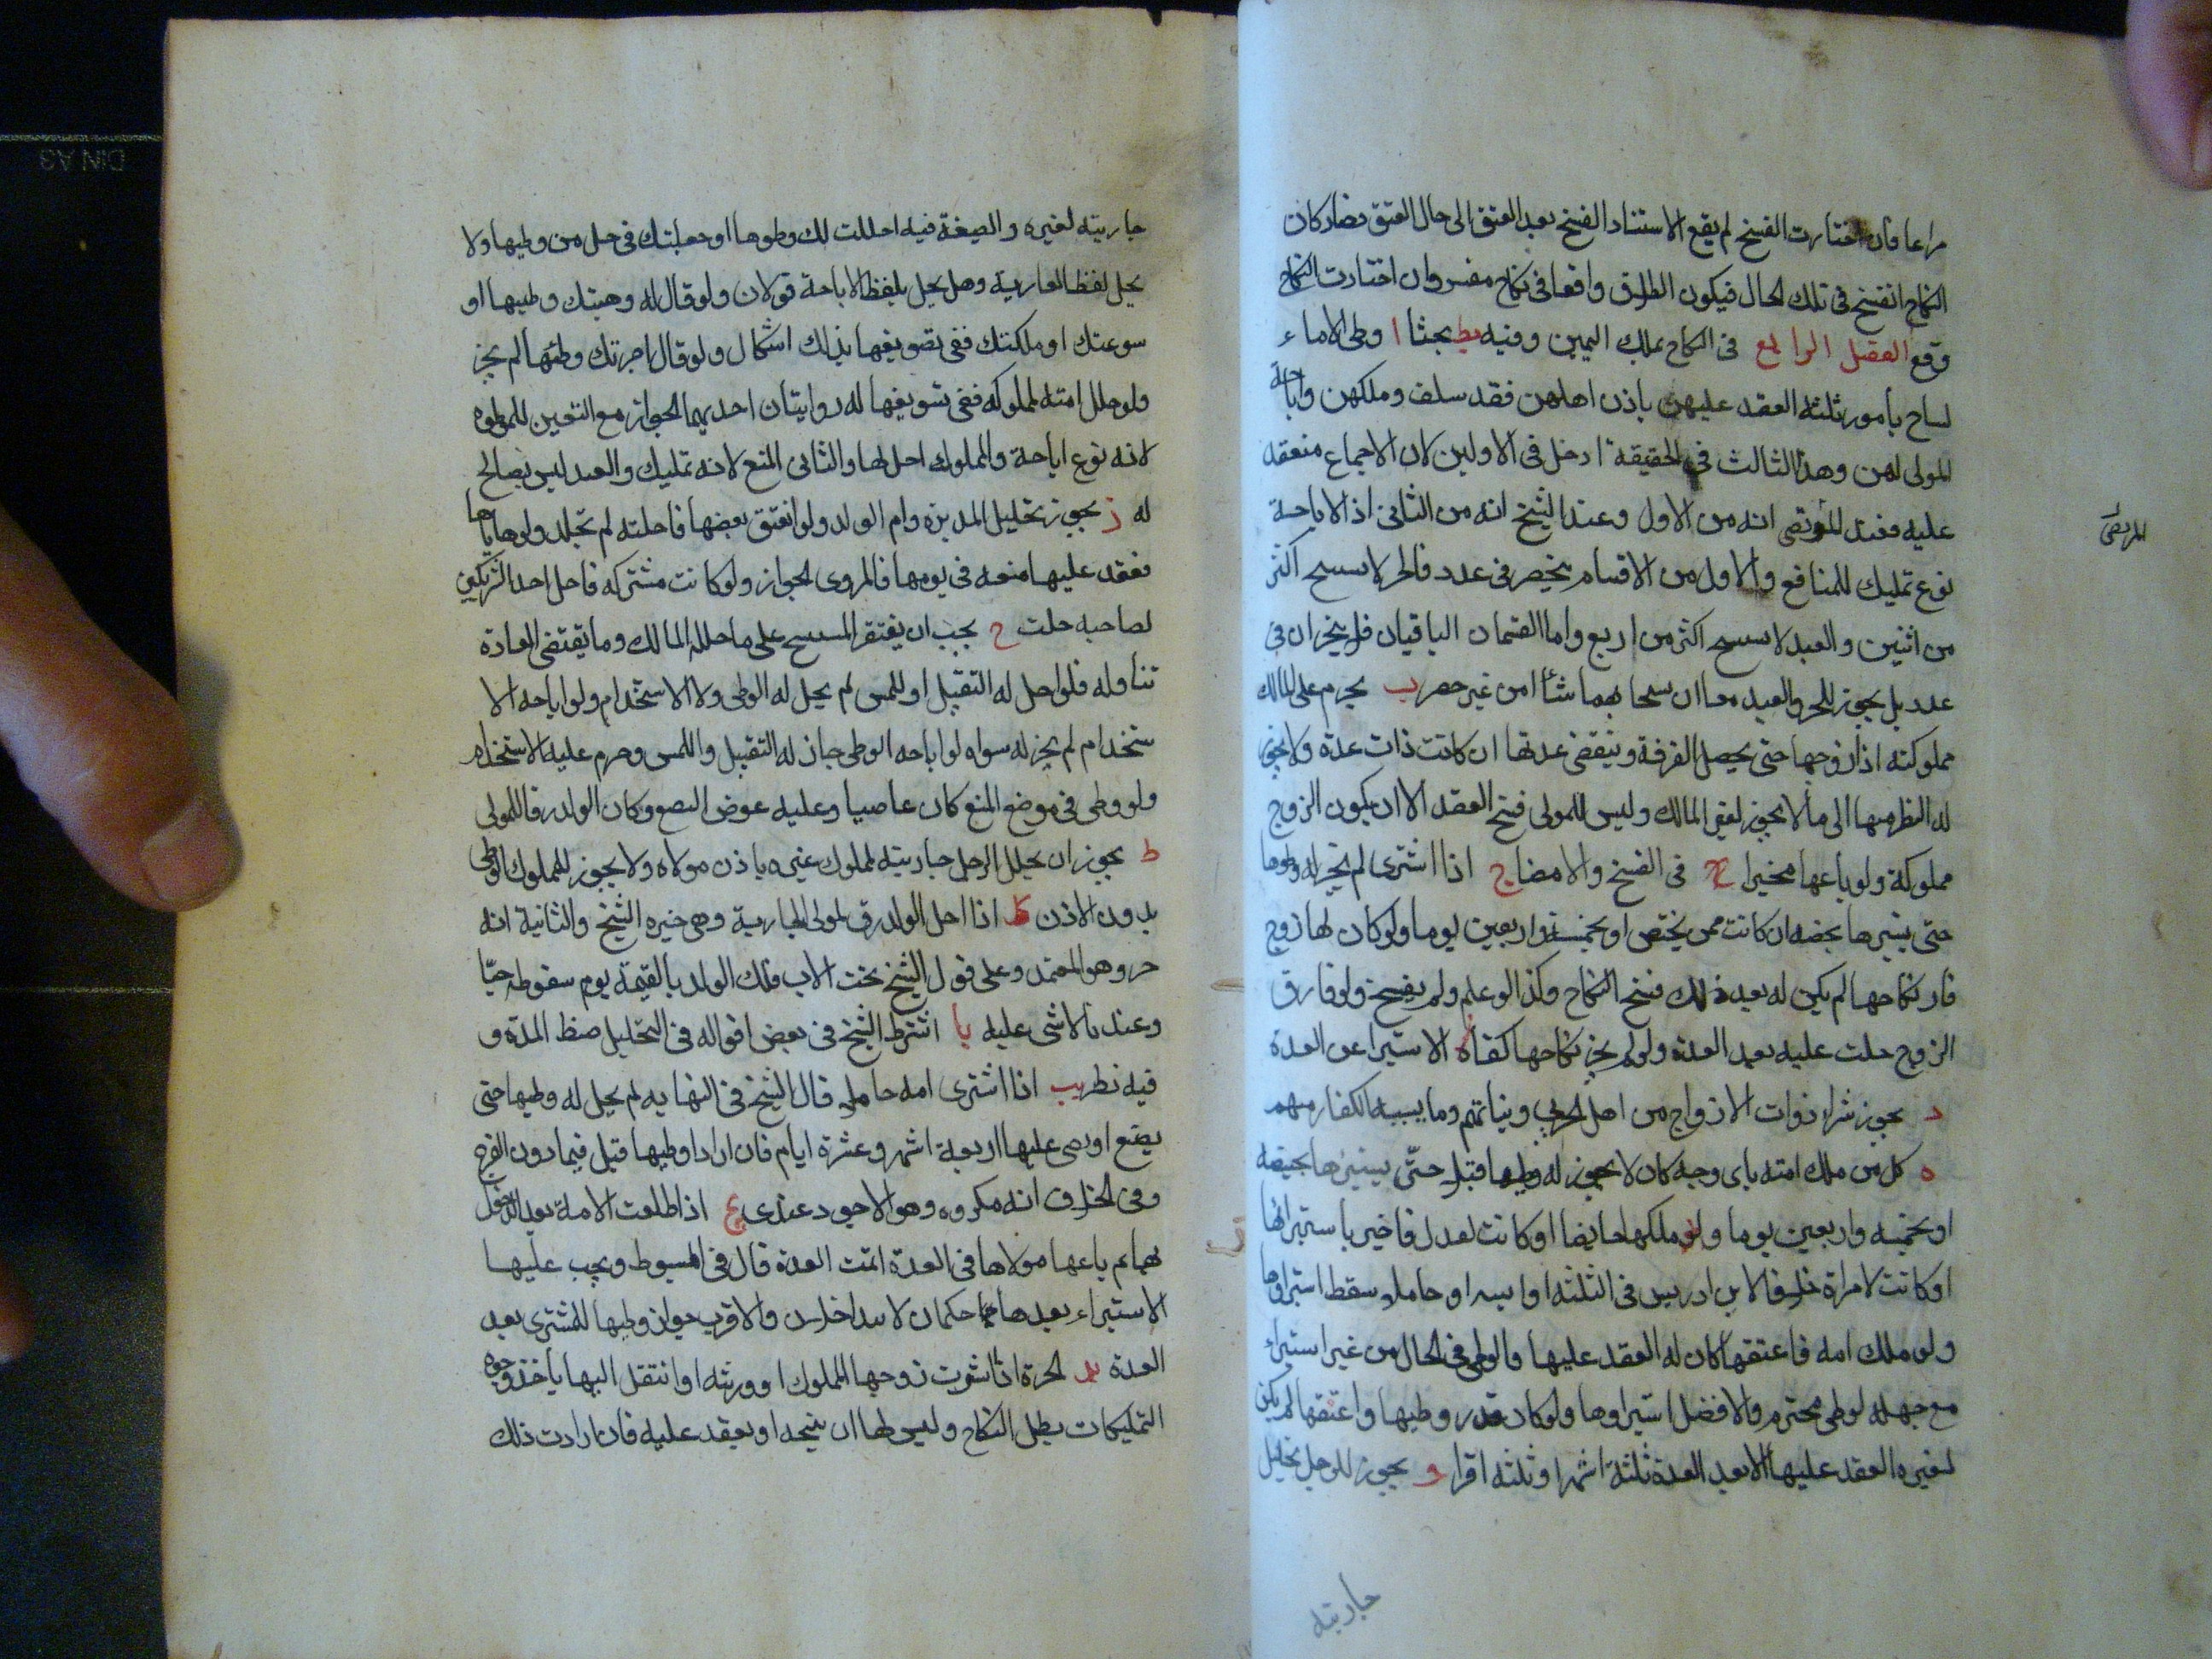 مراعا فان اختارت الفسخ لم يقع الاستناد الفسخ بعد العتق الى حال العتق فصار كان
النكاح انفسخ فى تلك الحال فيكون الطلاق واقعا فى نكاح مفسر وان اختارت النكاح
وقع الفصل الرابع فى النكاح بملك اليمين وفيه يط بحثا ا وطى الاماء
لساح بأمور ثلثه العقد عليهن باذن اهلهن فقد سلف وملكهن واباحة
المولى لهن وهذا الثالث فى الحقيقة ادخل فى الاولين لان الاجماع منعقد
عليه فعند المرتضى انه من الاول وعند الشيخ انه من الثانى اذ الاباحة
المرتضى
نوع تمليك للمنافع والاول من الاقسام ينحصر فى عدد فالحر لا سسح اكثر
من اثنين والعبد لا سسح اكثر من اربع واما القسمان الباقيان فلا ينحزان فى
عدد بل يجوز للحر والعبد معا ان سحا بهما شأا من غير حصر ب يحرم على المالك
مملوكته اذا زوجها حتى يحصل الفرقة وينقضى عدتها ان كانت ذات عدة ولا يجوز
له النظر منها الى ما لا يجوز لغير المالك وليس للمولى فسخ العقد الا ان يكون الزوج
مملوكه ولو باعها مخيرا فى الفسخ والامضا ج اذا اشترى لم يجز له وطوها
حتى يستبرها بحيضه ان كانت ممن يحيض او بخمسة واربعين يوما ولو كان لها زوج
فاد نكاحها لم يكن له بعد ذلك فسخ النكاح وكذا لو علم ولم يفسخ ولو فارق
الزوج حلت عليه بعد العدة ولو لم يجز نكاحها كفاه الاستبرا عن العدة
د يجوز شراء ذوات الازواج من اهل الحرب وبناتهم وما يسبيه الكفار منهم
ه كل من ملك امته باى وجه كان لا يجوز له وطيها قبل حتى يستبرئها بحيضه
او بخمسه واربعين يوما ولو ملكها حايضا او كانت لعدل فاخبر باستبرائها
او كانت لامراة خلافا لابن ادريس فى الثلثه او ايسه او حاملا سقط استبراوها
ولو ملك امه فاعتقها كان له العقد عليها والوطى فى الحال من غير استبراء
مع جهله لوطى محترم والافضل استبراوها ولو كان قد وطيها واعتقها لم يكن
لغيره العقد عليها الا بعد العدة ثلثة اشهر او ثلثه اقرا و يجوز للرجل تحليل
جاريته
جاريته لغيره والصيغة فيه احللت لك وطوها او جعلتك فى حل من وطيها ولا
يحل لفظ العارية وهل يحل بلفظ الاباحة قولان ولو قال له وهبتك وطيها او
سوغتك او ملكتك ففى تصويغها بذلك اشكال ولو قال اجرتك وطئها لم يجز
ولو حلل امته لمملوكه ففى تسويغها له روايتان احديهما الجواز مع التعين للموطوه
لانه نوع اباحة والمملوك احل لها والثانى المنع لانه تمليك والعبد ليس بصالح
له ز يجوز تحليل المدبرة وام الولد ولو انعتق بعضها فاحلته لم تحلد ولو هاياها
فعقد عليها متعه فى يومها فالمروى الجواز ولو كانت مشتركه فاحل احد الشريكين
لصاحبه حلت ح يجب ان يفتقر المسسح على ما حلله المالك وما يقتضى العادة
تناوله فلو احل له التقبيل او اللمس لم يحل له الوطى ولا الاستخدام ولو اباحه الا
ستخدام لم يجز له سواه لو اباحه الوطى جاز له التقبيل واللمس وحرم عليه الاستخدام
ولو وطى فى موضع المنع كان عاصيا وعليه عوض البضع وكان الولد رقا للمولى
ط يجوز ان يحلل الرجل جاريته لمملوك غيره باذن مولاه ولا يجوز للمملوك الوطى
بدون الاذن اذا احل الولد رق لمولى الجارية وهى خيره الشيخ والثانية انه
حر وهو المعتمد وعلى قول الشيخ يخت الاب فلك الولد بالقيمة يوم سقوطه حيّا
وعندنا لا شى عليه يا اشترط الشيخ فى بعض اقواله فى التحليل ضبط المدة و
فيه نظر يب اذا اشترى امه حاملا قال الشيخ فى النهايه لم يحل له وطيها حتى
يضع او يمضى عليها اربعة اشهر وعشرة ايام فان اراد وطيها قبل فيما دون الفرج
وفى الخلاف انه مكروه وهو الاجود عندى يج اذا طلقت الامة بعد الدخول
بها ثم باعها مولاها فى العدة اتمت العدة قال فى المبسوط ويجب عليها
الاستبراء بعدها حكمان لا يتداخلان والاقرب جواز وطيها للمشترى بعد
العدة يد الحرة اذا اشريت زوجها المملوك او ورثته او انتقل اليها باحد وجوه
التمليكات بطل النكاح وليس لها ان يبيحه او يعقد عليه فان ارادت ذلك